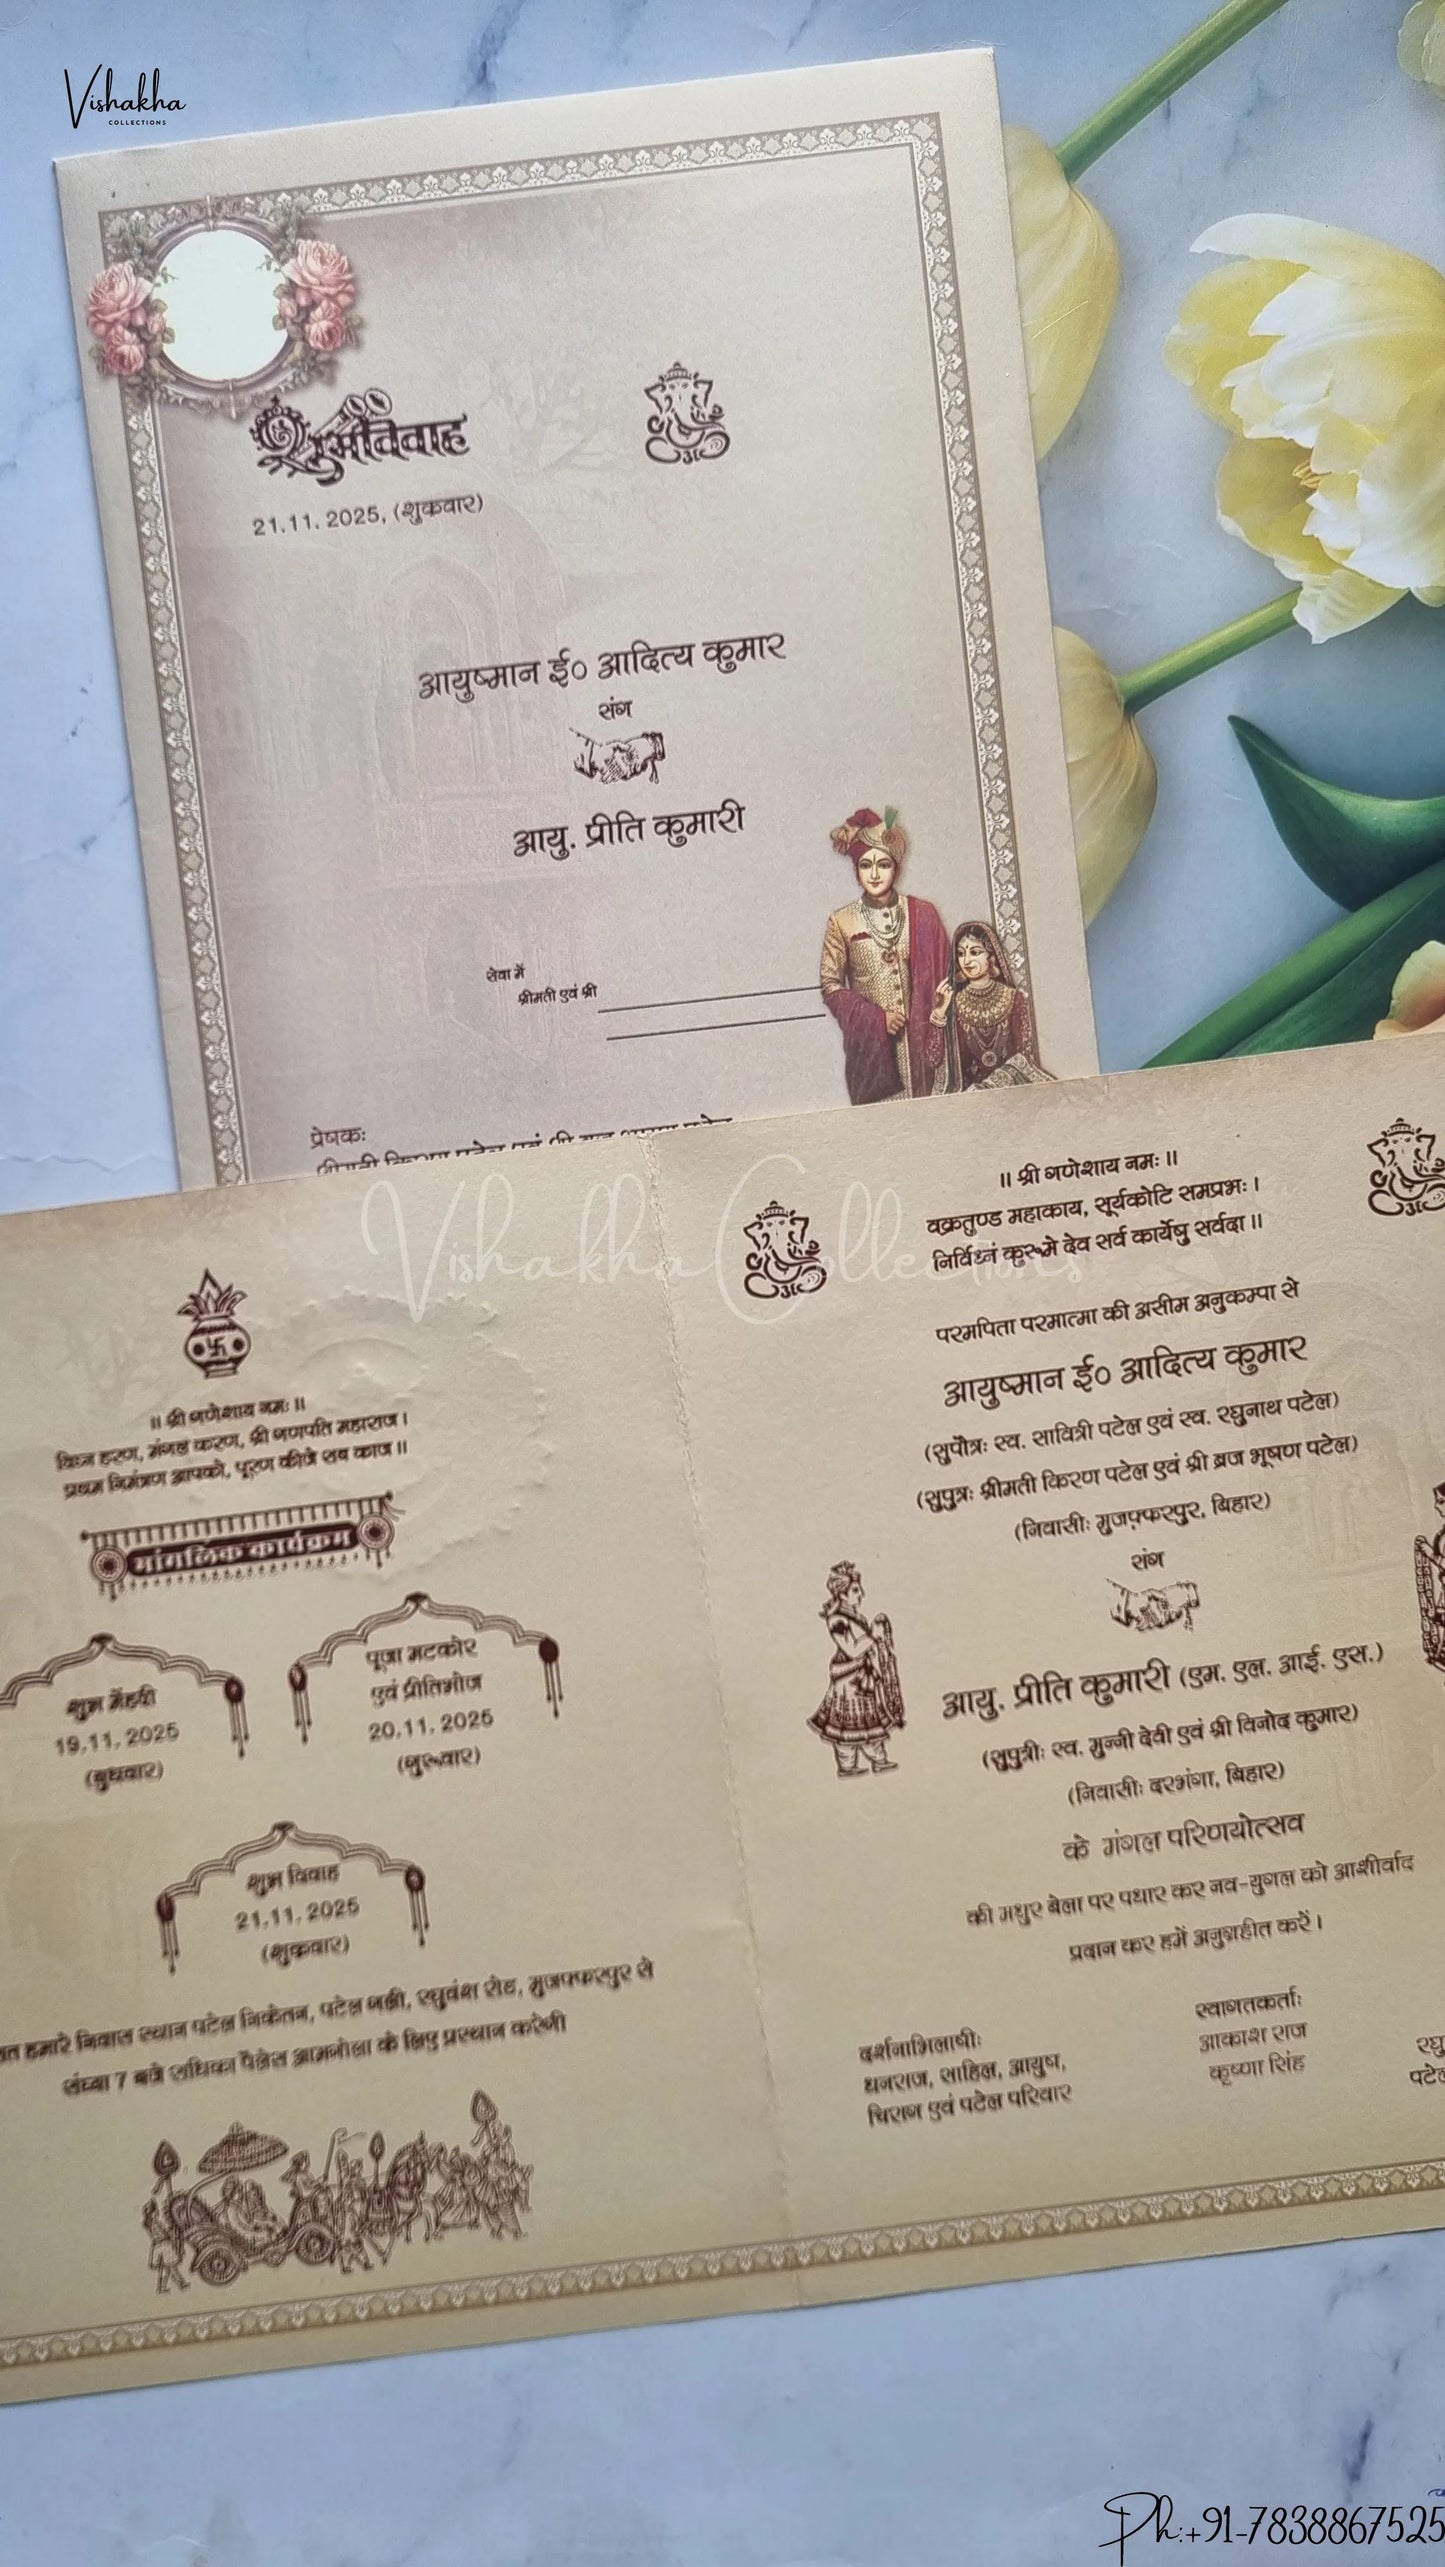 Vishakha
COLLECTIONS
शुभविवाह
21.11. 2025, (शुक्रवार)
आयुष्मान ई० आदित्य कुमार
संग
आयु. प्रीति कुमारी
सेवा में
श्रीमती एवं श्री
प्रेषकः
श्रीमती किरण पटेल एवं श्री
Vishakha Collections
॥ श्री गणेशाय नमः ॥
विघ्न हरण, मंगल करण, श्री गणपति महाराज।
प्रथम निमंत्रण आपको, पूरण कीजे सब काज॥
मांगलिक कार्यक्रम
शुभ मेंहदी
19.11. 2025
(बुधवार)
पूजा मटकोर
एवं प्रीतिभोज
20.11. 2025
(गुरूवार)
शुभ विवाह
21.11. 2025
(शुक्रवार)
हमारे निवास स्थान पटेल निकेतन, पटेल गली, रघुवंश रोड, मुजफ्फरपुर से
संध्या 7 बजे राधिका पैलेस आमगोला के लिए प्रस्थान करेगी
॥ श्री गणेशाय नमः ॥
वक्रतुण्ड महाकाय, सूर्यकोटि समप्रभः।
निर्विघ्नं कुरूमे देव सर्व कार्येषु सर्वदा॥
परमपिता परमात्मा की असीम अनुकम्पा से
आयुष्मान ई० आदित्य कुमार
(सुपौत्रः स्व. सावित्री पटेल एवं स्व. रघुनाथ पटेल)
(सुपुत्रः श्रीमती किरण पटेल एवं श्री ब्रज भूषण पटेल)
(निवासीः मुजफ़्फरपुर, बिहार)
संग
आयु. प्रीति कुमारी (एम. एल. आई. एस.)
(सुपुत्रीः स्व. मुन्नी देवी एवं श्री विनोद कुमार)
(निवासीः दरभंगा, बिहार)
के मंगल परिणयोत्सव
की मधुर बेला पर पधार कर नव-युगल को आशीर्वाद
प्रदान कर हमें अनुग्रहीत करें।
दर्शनाभिलाषीः
धनराज, साहिल, आयुष,
चिराग एवं पटेल परिवार
स्वागतकर्ताः
आकाश राज
कृष्णा सिंह
Ph:+91-7838867525